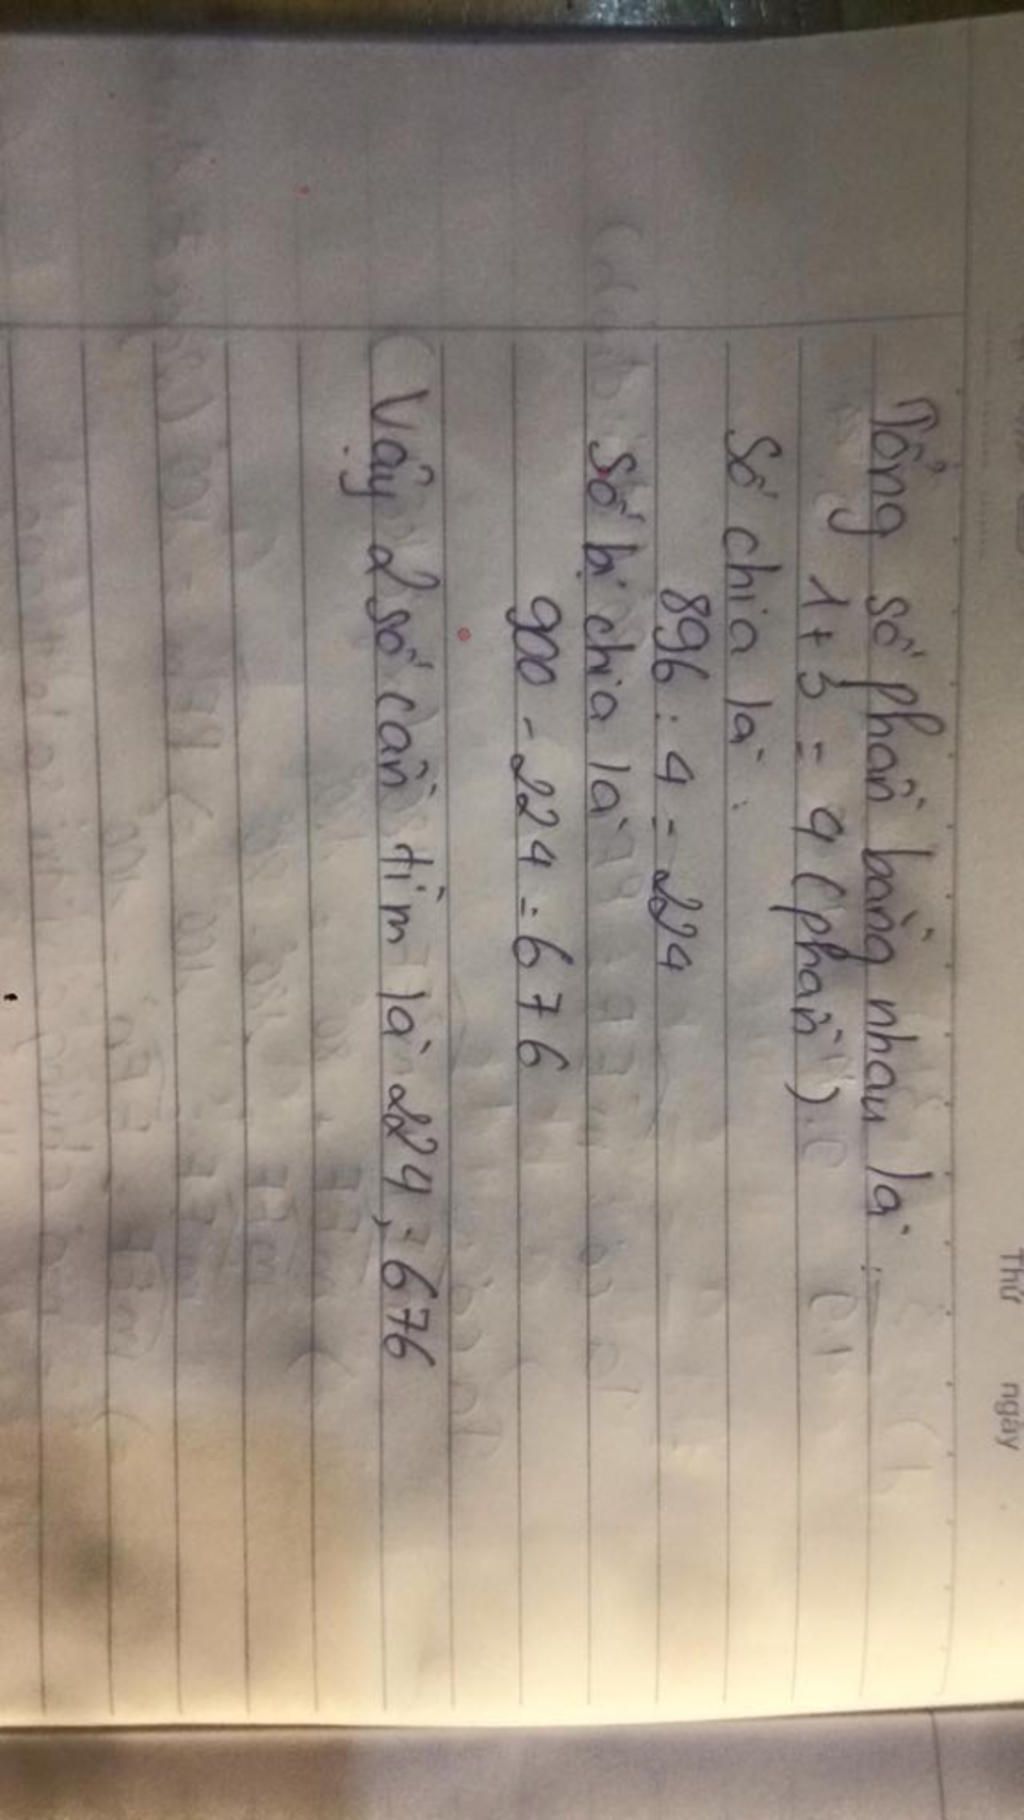 Thứ ngày
Tổng số phần bằng nhau là:
1 + 3 = 4 (phần).
Số chia là:
896 : 4 = 224
Số bị chia là
900 - 224 = 676
Vậy 2 số cần tìm là 224; 676